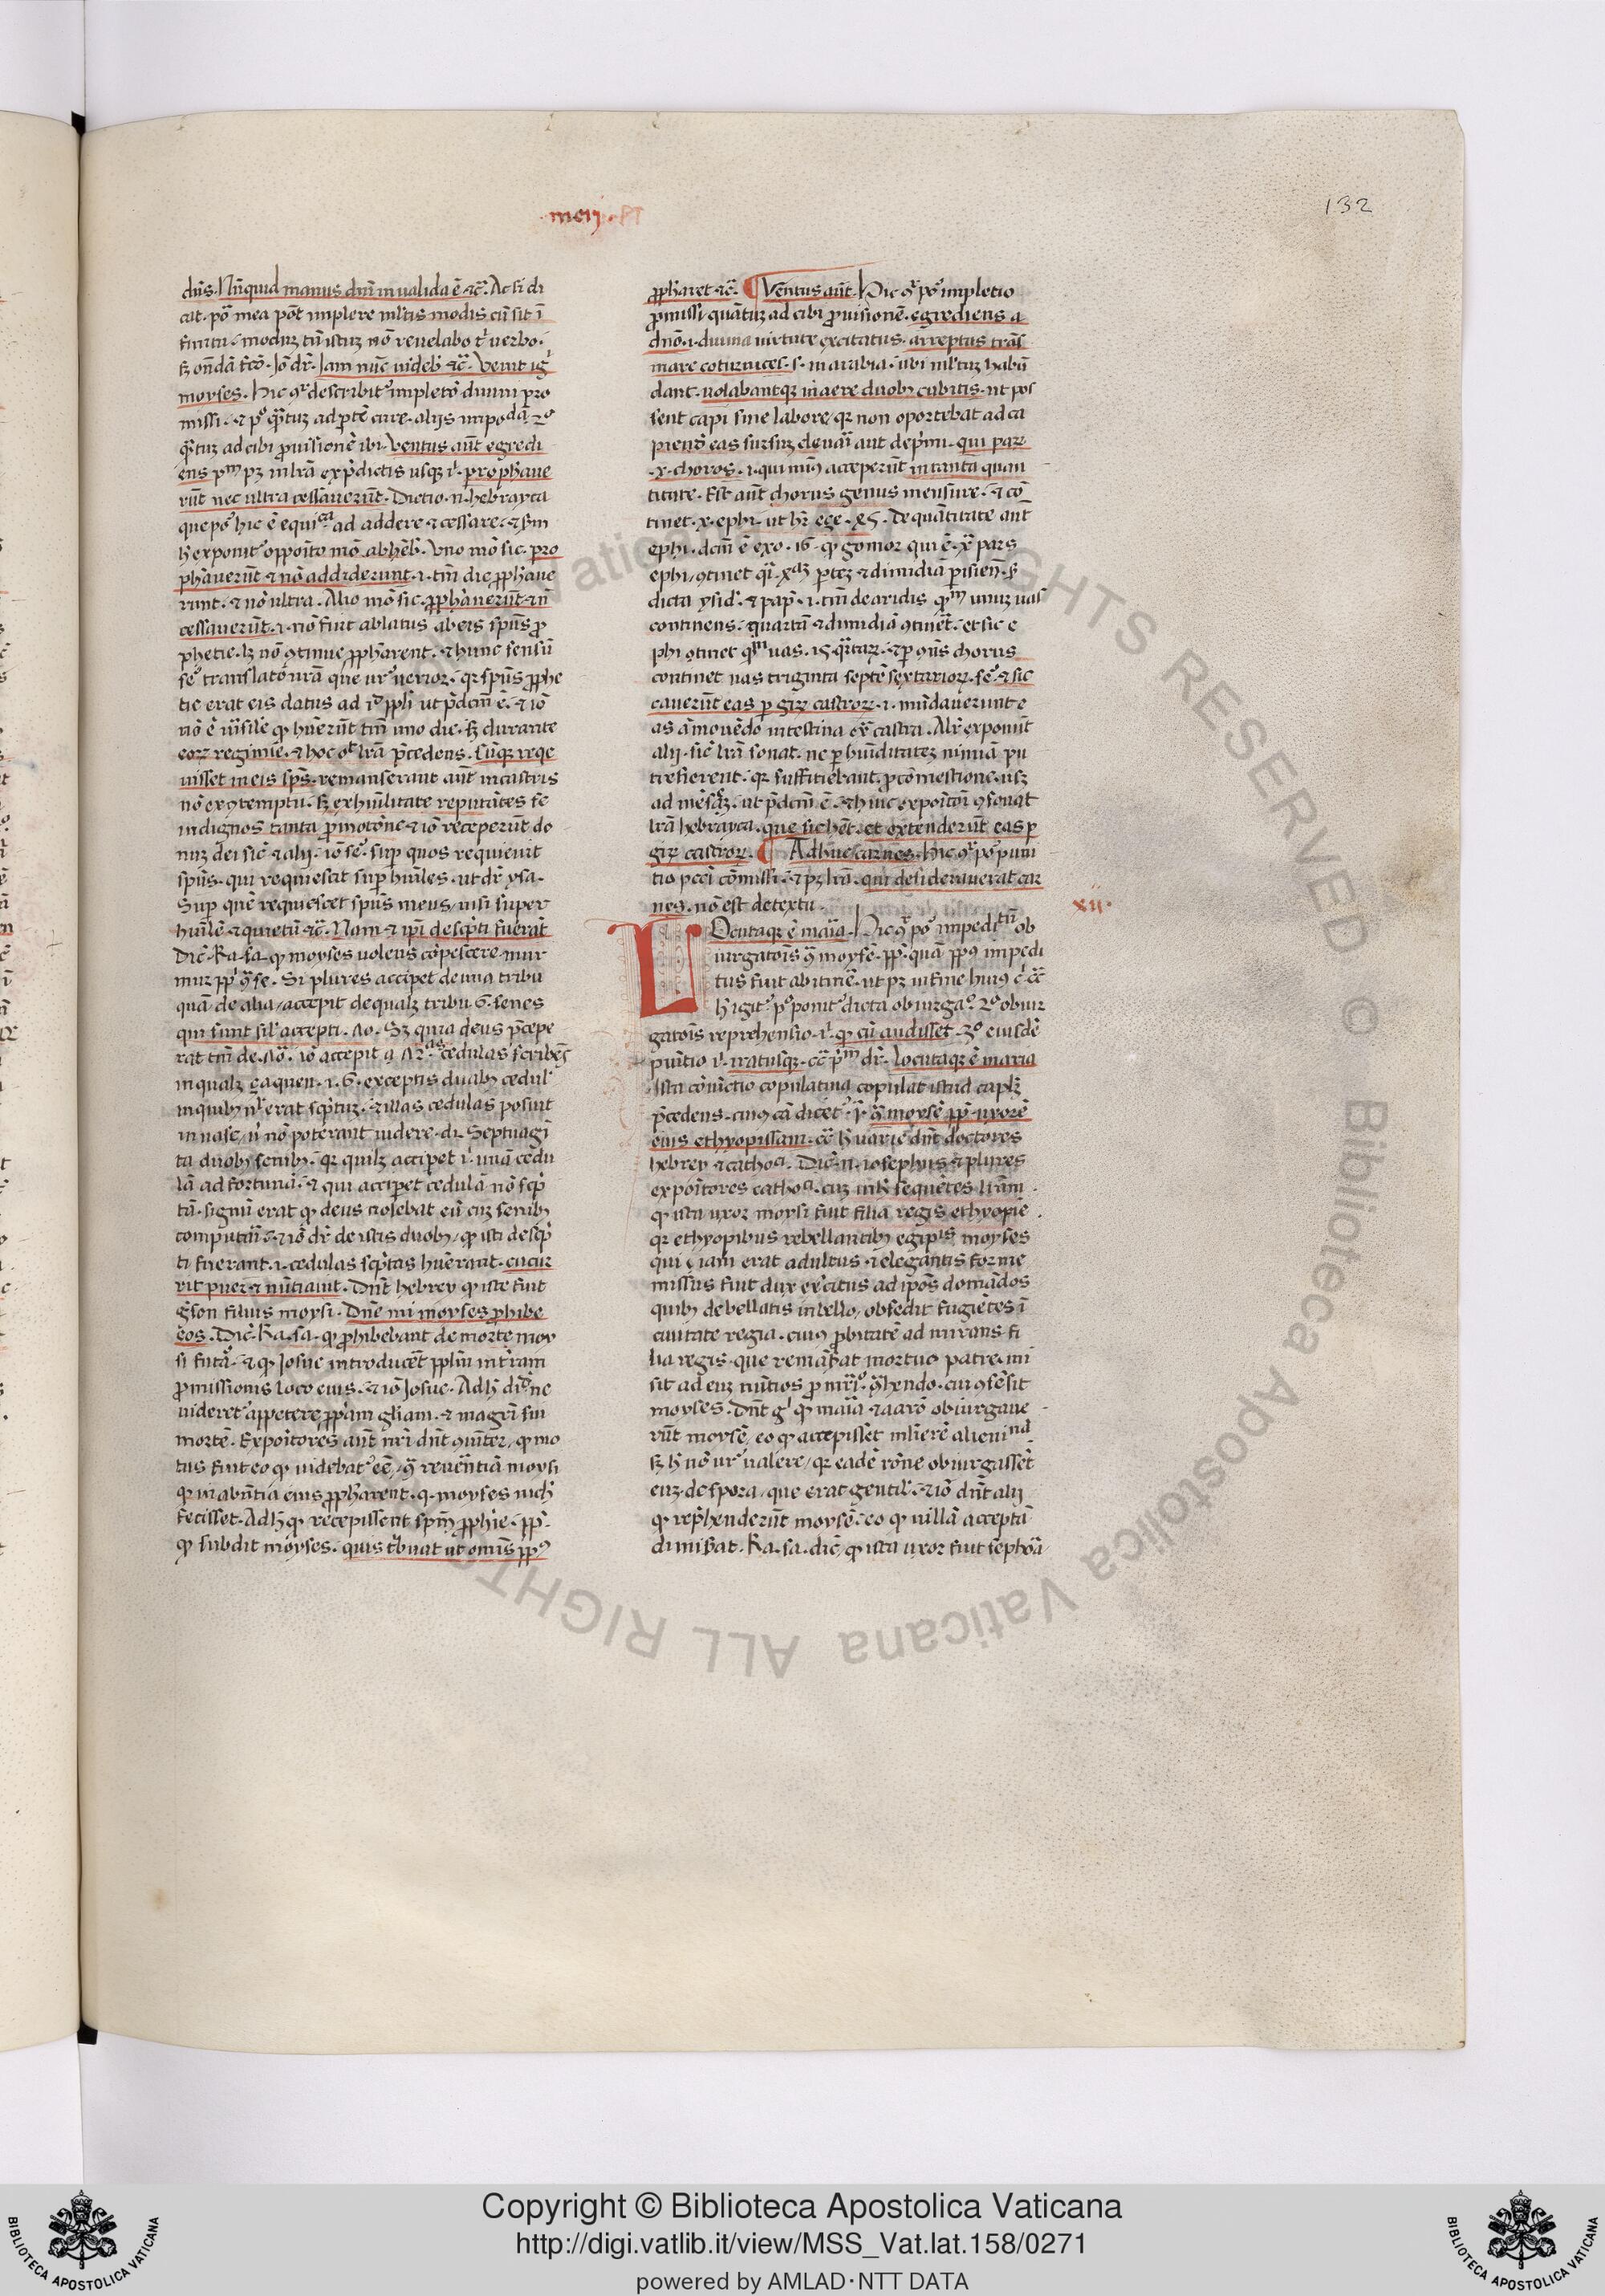 132
dn̄s. Nūquid manus dn̄i inualida ē ⁊c̄. Ac si di
cat. pō mea pōt implere ml̄tis modis cū sit ī
finitu. modū tn̄ istuȝ nō reuelabo t' uerbo.
sȝ on̄dā fc̄o. Iō dr̄. Iam nūc uideb' ⁊c̄. Venit ig'
moyses. Hic ꝯr describit' impletō diuini pro
missi. ⁊ pº qͣtuȝ ad pͭe cure. alijs impodā 2º
qͣtuȝ ad cibi ꝓuisionē ibi. Ventus aūt egredi
ens pᵐ pȝ in lr̄a ex p̄dictis usqȝ ī. prophaue
rūt nec ultra cessauerūt. Dictio .n. hebrayca
que pº hic ē equicᵃ ad addere ⁊ cessare. ⁊ sm̄
h̄ exponit' opposito mō ab heb'. Vno mō sic. pro
phauerūt ⁊ nō addiderunt .i. tm̄ die ꝓphaue
runt. ⁊ nō ultra. Alio mō sic. ꝓphauerūt ⁊ n̄
cessauerūt .i. nō fuit ablatus ab eis spūs ꝓ
phetie. sȝ nō ꝯtinue ꝓpharent. ⁊ hunc sensū
seº translatō nr̄a que ur' uerior. qr spūs ꝓphe
tie erat eis datus ad rº ppl'i ut p̄dcm̄ ē. ⁊ iō
nō ē uīsile qꝫ hūerūt tm̄ uno die. sȝ durante
eoꝝ regimīe. ⁊ hoc oᵗ lr̄a p̄cedens. Cūqȝ reqe
uisset in eis sps̄. remanserant aūt in castris
nō ex ꝯtemptu. sȝ ex hūilitate reputātes se
indignos tanta ꝓmotōne ⁊ iō receperūt do
nuȝ dei sic̄ ⁊ alij. iō seº. sup quos requieuit
spūs. qui requiescit sup hūiles. ut dr̄ ysa.
Sup quē requiescet spūs meus, nisi super
hūilē ⁊ quietū ⁊c̄. Nam ⁊ ip̄i desc̄pti fuerāt
Dic̄. Ra. sa. qꝫ moyses uolens cōpescere mur
mur ppl'i ꝯ se. Si plures acciperet de una tribu
quā de alia, accepit de qualȝ tribu 6. senes
qui simt sil' accepti. 70. Sȝ quia deus p̄cepe
rat tm̄ de .70. iō accepit 72 ᵃˢ cedulas scribēs
in qualȝ eaquen .i. 6. exceptis duabȝ cedul'
in quibȝ nl' erat sc̄ptuȝ. ⁊ illas cedulas posuit
in uase, u' nō poterant uidere. di. Septuagī
ta duobȝ senibȝ. qr quilȝ acciperet ī. unā cedu
lā ad fortunā. ⁊ qui acciperet cedulā nō sc̄p
tā. signū erat qꝫ deus nolebat eū cuȝ senibȝ
computari. ⁊ iō dr̄ de istis duobȝ, qꝫ isti desc̄p
ti fuerant .i. cedulas sc̄ptas hūerant. cucur
rit puer ⁊ nūtiauit. Dn̄t hebrey qꝫ iste fuit
g̅son filius moysi. Dn̄e mi moyses ꝓhibe
eos. Dic̄. Ra. sa. qꝫ ꝓphibebant de morte moy
si futā. ⁊ qꝫ Iosue introducēt ppl'm in t'ram
ꝓmissionis loco eius. ⁊ iō Iosue. Ad h̄ dixᵗ ne
uideret' appetere ꝓp̄am gl'iam. ⁊ magr̄i sui
mortē. Expositores aūt nr̄i dn̄t ꝯiūter, qꝫ mo
tus fuit eo qꝫ uidebat' eē, ꝯ reuerētiā moysi
qr in abn̄tia eius ꝓpharent. q. moyses nich'
fecisset. Ad h̄ qꝫ recepissent spm̄ ꝓphie. ppl'.
qꝫ subdit moyses. quis t'buat ut omīs ppl'ꝰ
ꝓpharet ⁊c̄. ¶ Ventus aūt. Hic ꝯr pº impletio
ꝓmissi quātuȝ ad cibi ꝓuisionē. egrediens a
dn̄o .i. diuina uirtute excitatus. arreptus trās
mare coturnices .s. in arabia. ubi ml'tuȝ habū
dant. uolabantqȝ in aere duobȝ cubitis. ut pos
sent capi sine labore, qr non oportebat ad ca
piendº eas sursuȝ eleuari aut dep'mi. qui par̄
.x. choros .i. qui minꝰ acceperūt in tanta quan
titate. Est aūt chorus genus mensure. ⁊ cō
tinet .x. ephi. ut hr̄ eȝe. 45. De quātitate aut
ephi. dcm̄ ē exo. 16. qꝫ gomor qui ē .xᵃ pars
ephi, ꝯtinet qͥ. xᵃᵐ p̄teȝ ⁊ dimidiā p̄isien̄. s'
dicta ysid'. ⁊ pap'. i. tm̄ de aridis qᵐ unuȝ uas
continens. quartā ⁊ dimidiā ꝯtinēt. et sic e
phi ꝯtinet qᵐ uas. 15. qͣrtaꝝ. ⁊ p ꝯn̄s chorus
continet uas triginta septē sextarioꝝ. seº. ⁊ sic
cauerūt eas p giꝝ castroꝝ .i. mūdauerunt e
as āmouēdo intestina ex̄ castra. Alr̄ exponūt
alij. sic̄ lr̄a sonat. ne p hūiditateȝ nimiā pu
trefierent. qr sufficiebant ꝓ cōmestione. usqȝ
ad mēsē. ut p̄dcm̄ ē. ⁊ huic expōitōi ꝯsonat
lr̄a hebrayca. que sic hēt. et extenderūt eas p
giꝝ castroꝝ. ¶ Adhuc carnes. Hic ꝯr pº puni
tio pcc̄i cōmissi. ⁊ pȝ lr̄a. qui desiderauerat car
nes. nō est de textu.
xii.
LOcutaqȝ ē mar̄ia. Hic ꝯr pº impeditū ob
iurgatōis ꝯ moysē. ppl'. quā ppl'ꝰ impedi
tus fuit ab itinē. ut pȝ in fine huiꝰ c'. cc̄
h̄ igit' pº ponit' dicta obiurgaº. 2º obiur
gatōis reprehensio. ī. qꝫ cū audisset. 3º eiusdē
punitio ī. iratusqȝ. cc̄ p'ᵐ dr̄. Locutaqȝ ē maria
Ista cōiūctio copulatiua copulat istud capl'ȝ
p̄cedens. cuiꝰ cā dicet' .i. ꝯ moysē ppl'. uxorē
eius ethyopissam. cc̄ h̄ uarie dn̄t doctores
hebrey ⁊ cathoᶜⁱ. Dic̄ .n. iosephus ⁊ plures
expōitores cathoᶜⁱ. cuȝ ml'ti sequētes lr̄am
qꝫ ista uxor moysi fuit filia regis ethyopie
qr ethyopibus rebellantibȝ egip̄ˢ moyses
qui iam erat adultus ⁊ elegantis forme
missus fuit dux exc̄itus ad ip̄os domādos
quibȝ debellatis in bello, obsedit fugiētes ī
ciuitate regia. cuiꝰ ꝓbitatē admirans fi
lia regis. que remāserat mortuo patre. mi
sit ad euȝ nūtios ꝓ mr̄ioº. ꝯhendo. cui ꝯsēsit
moyses. Dn̄t gº qꝫ maria ⁊ aarō obiurgaue
rūt moysē, eo qꝫ accepisset mlierē alieniᵍⁿᵃ
sȝ h̄ nō ur' ualere, qr eadē rōne obiurgassēt
euȝ de sepora, que erat gentil'. ⁊ iō dn̄t alij
qꝫ rep̄henderūt moysē. eo qꝫ illā acceptā
dimiserat. Ra. sa. dic̄, qꝫ ista uxor fuit sephora
Copyright © Biblioteca Apostolica Vaticana
http://digi.vatlib.it/view/MSS_Vat.lat.158/0271
powered by AMLAD·NTT DATA